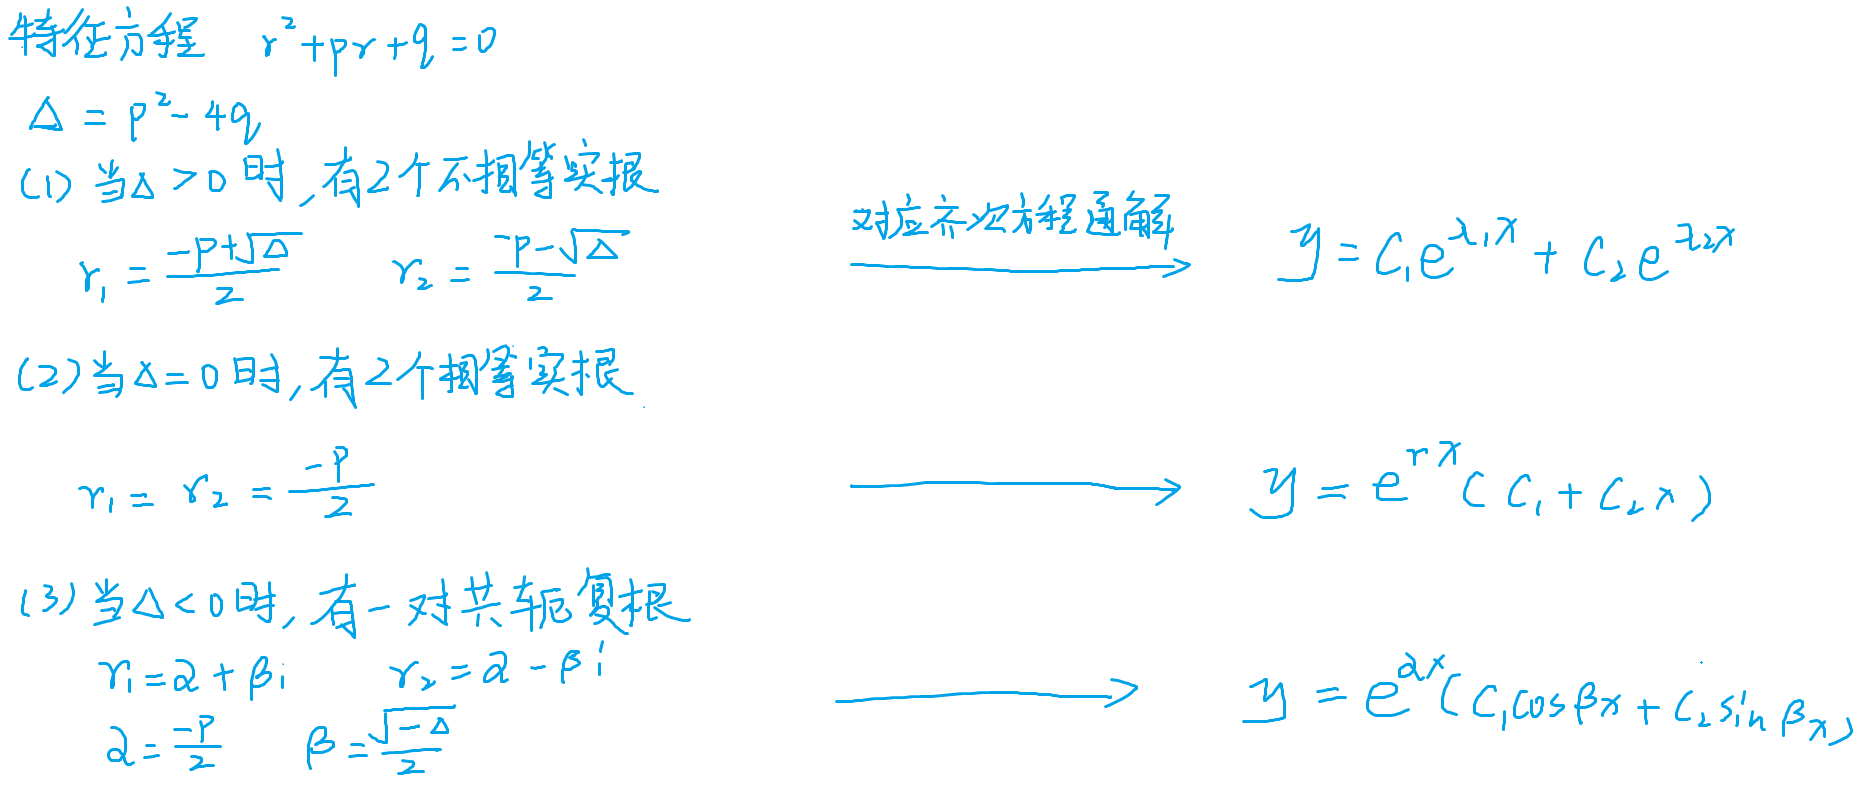 特征方程 r²+pr+q=0
Δ = p²-4q
(1) 当Δ>0时,有2个不相等实根
r₁ = (-p+√Δ)/2 r₂ = (-p-√Δ)/2
对应齐次方程通解
y = C₁e^{λ₁x} + C₂e^{λ₂x}
(2) 当Δ=0时,有2个相等实根
r₁ = r₂ = -p/2
y = e^{rx}(C₁+C₂x)
(3) 当Δ<0时,有一对共轭复根
r₁=α+βi r₂=α-βi
α=-p/2 β=√-Δ/2
y = e^{αx}(C₁cosβx+C₂sinβx)